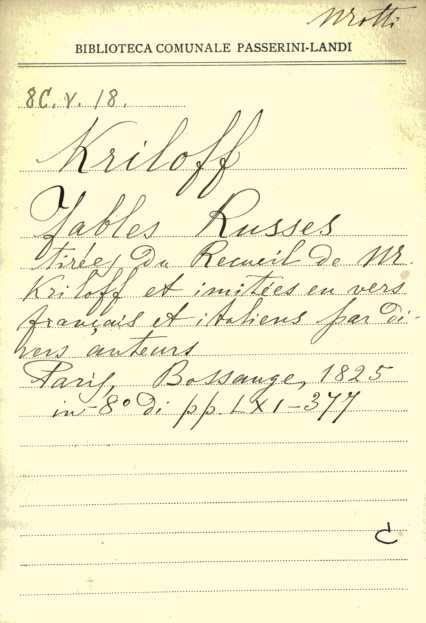 Mrotti
BIBLIOTECA COMUNALE PASSERINI-LANDI
8C. V. 18.
Kriloff
Fables Russes
tirées du Recueil de Mr.
Kriloff et imitées en vers
français et italiens par di-
vers auteurs
Paris, Bossange, 1825
in-8° di pp. LXI-377
C